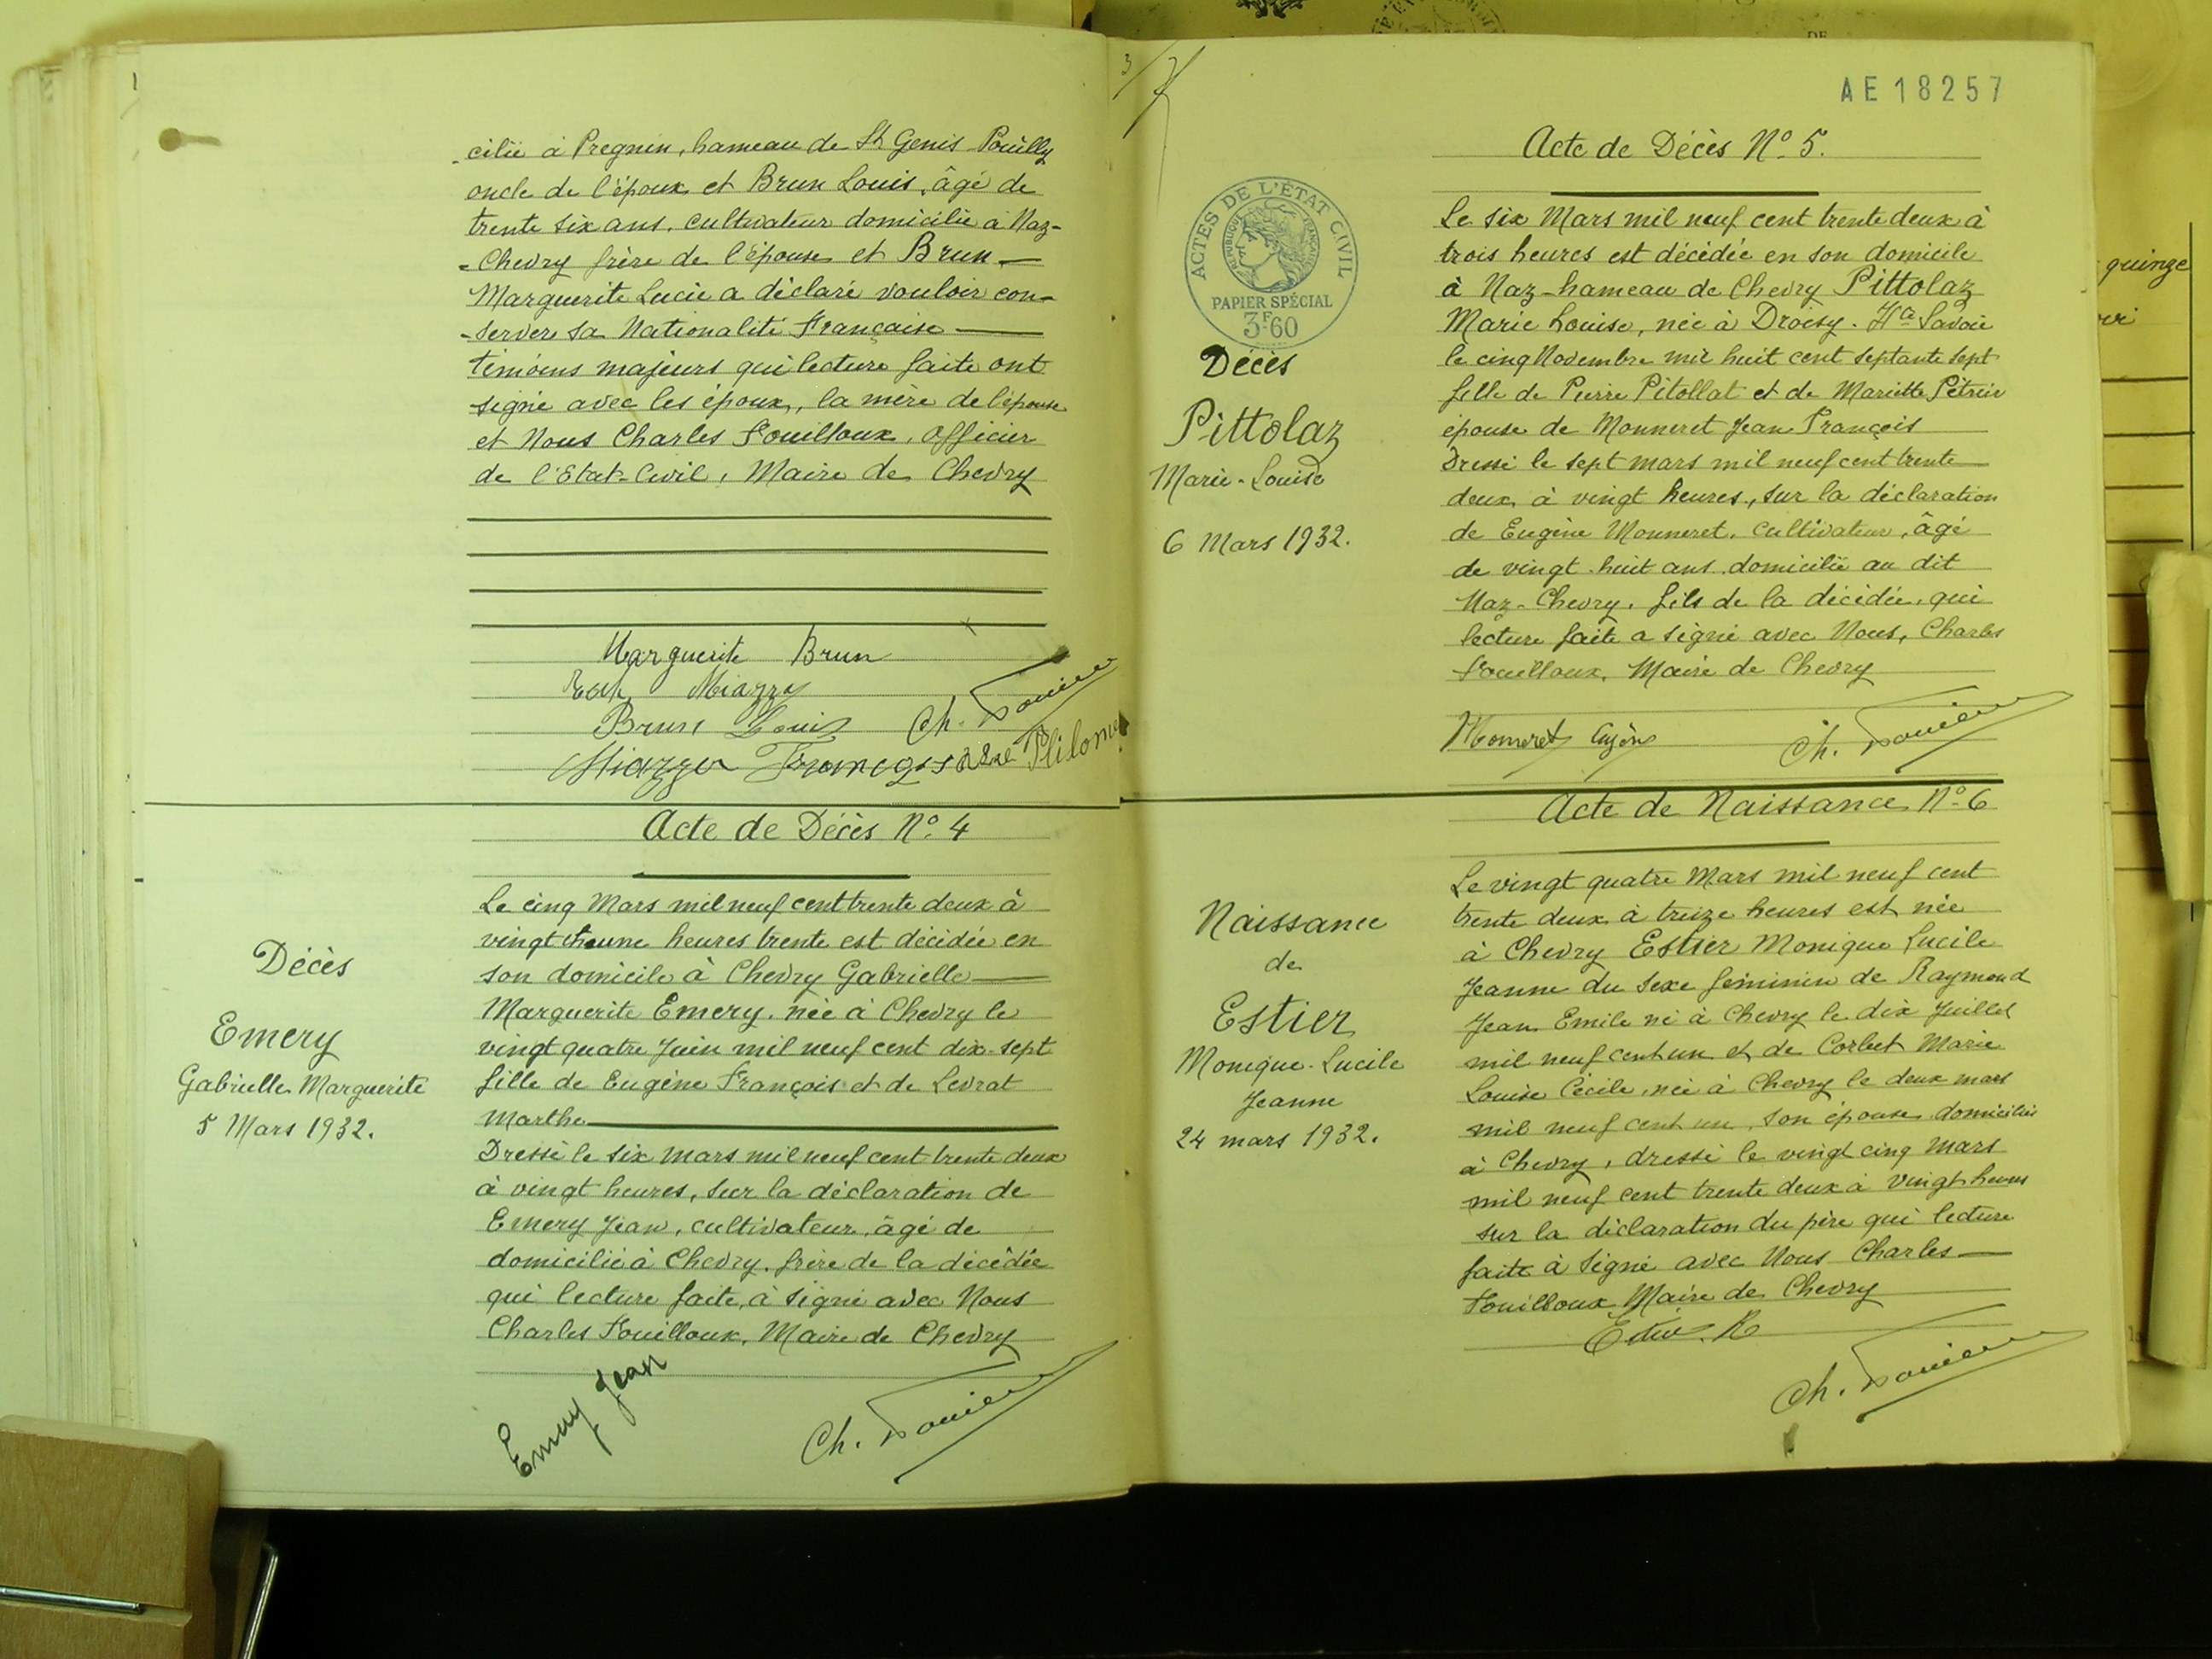 -cilié à Pregnin, hameau de St Genis-Pouilly
oncle de l'époux et Brun Louis, âgé de
trente six ans, cultivateur domicilié à Naz-
-Chevry frère de l'épouse et Brun
Marguerite Lucie a déclaré vouloir con-
-server sa Nationalité Française
témoins majeurs qui lecture faite ont
signé avec les époux, la mère de l'épouse
et Nous Charles Fouilloux, Officier
de l'Etat-Civil, Maire de Chevry
Marguerite Brun
Miazza
Brun Louis Ch. Fouilloux
Miazza
Acte de Décès No. 4
Décès
Emery
Gabrielle Marguerite
5 Mars 1932.
Le cinq Mars mil neuf cent trente deux à
vingt et une heures trente est décédée en
son domicile à Chevry Gabrielle
Marguerite Emery, née à Chevry le
vingt quatre Juin mil neuf cent dix-sept
fille de Eugène François et de Levrat
Marthe
Dressé le six mars mil neuf cent trente deux
à vingt heures, sur la déclaration de
Emery Jean, cultivateur, âgé de
domicilié à Chevry, frère de la décédée
qui lecture faite, à signé avec Nous
Charles Fouilloux, Maire de Chevry
Emery Jean
Ch. Fouilloux
3
AE 18257
Acte de Décès No. 5.
ACTES DE L'ÉTAT CIVIL
RÉPUBLIQUE FRANÇAISE
PAPIER SPÉCIAL
3F60
Décès
Pittolaz
Marie-Louise
6 Mars 1932.
Le six Mars mil neuf cent trente deux à
trois heures est décédée en son domicile
à Naz-hameau de Chevry Pittolaz
Marie Louise, née à Droisy. Hte Savoie
le cinq Novembre mil huit cent septante sept
fille de Pierre Pitollat et de Mariette
épouse de Monneret Jean François
Dressé le sept mars mil neuf cent trente
deux, à vingt heures, sur la déclaration
de Eugène Monneret, cultivateur, âgé
de vingt-huit ans domicilié au dit
Naz-Chevry, fils de la décédée, qui
lecture faite a signé avec Nous, Charles
Fouilloux, Maire de Chevry
Monneret Ch. Fouilloux
Acte de Naissance No. 6
Naissance
de
Estier
Monique-Lucile
Jeanne
24 mars 1932.
Le vingt quatre Mars mil neuf cent
trente deux à treize heures est née
à Chevry Estier Monique Lucile
Jeanne du sexe féminin de Raymond
Jean Emile né à Chevry le dix Juillet
mil neuf cent un et de Corbet Marie
Louise Cécile, née à Chevry le deux mars
mil neuf cent un, son épouse domiciliés
à Chevry, dressé le vingt cinq mars
mil neuf cent trente deux à vingt heures
sur la déclaration du père qui lecture
faite à signé avec Nous Charles
Fouilloux Maire de Chevry
Estier. R
Ch. Fouilloux
quinze